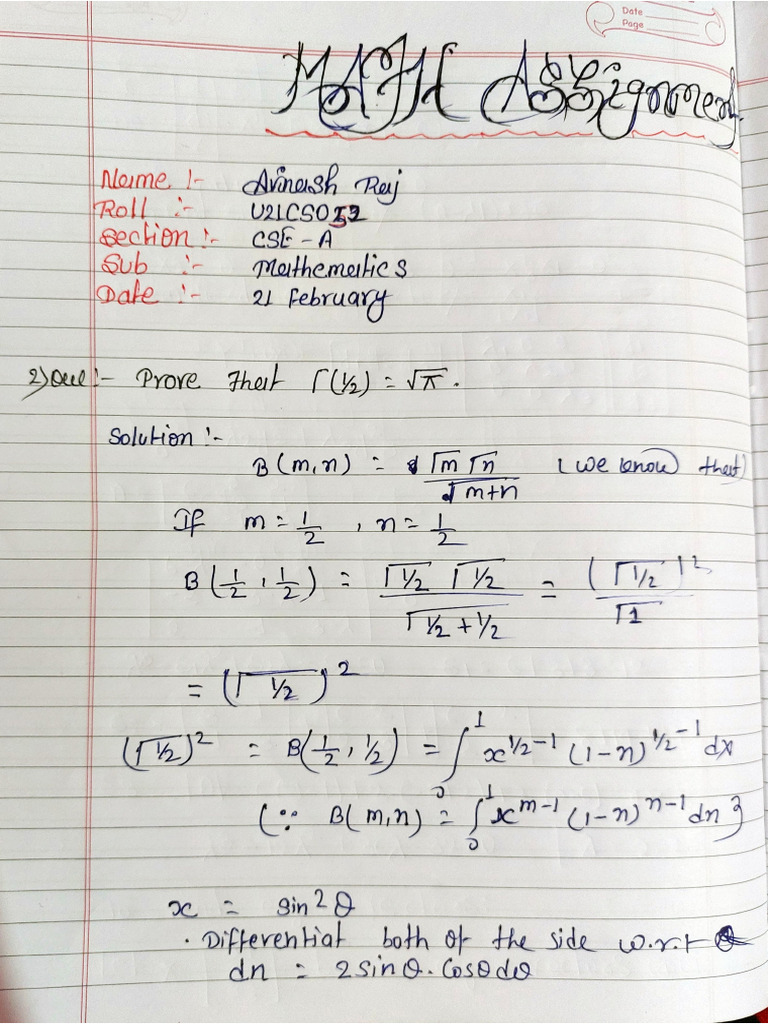 Date
Page
MATH Assignment
Name :- Avinash Raj
Roll :- U21CS052
Section :- CSE - A
Sub :- Mathematics
Date :- 21 February
2) Que :- Prove that Γ(1/2) = √π.
Solution :-
B(m,n) = Γm Γn / Γm+n (we know that)
If m = 1/2 , n = 1/2
B(1/2, 1/2) = Γ1/2 Γ1/2 / Γ1/2 + 1/2 = (Γ1/2)² / Γ1
= (Γ1/2)²
(Γ1/2)² = B(1/2, 1/2) = ∫₀¹ x^(1/2-1) (1-n)^(1/2-1) dx
(∵ B(m,n) = ∫₀¹ x^(m-1) (1-n)^(n-1) dn }
x = sin²θ
. Differential both of the side w.r.t θ
dn = 2sinθ.cosθdθ